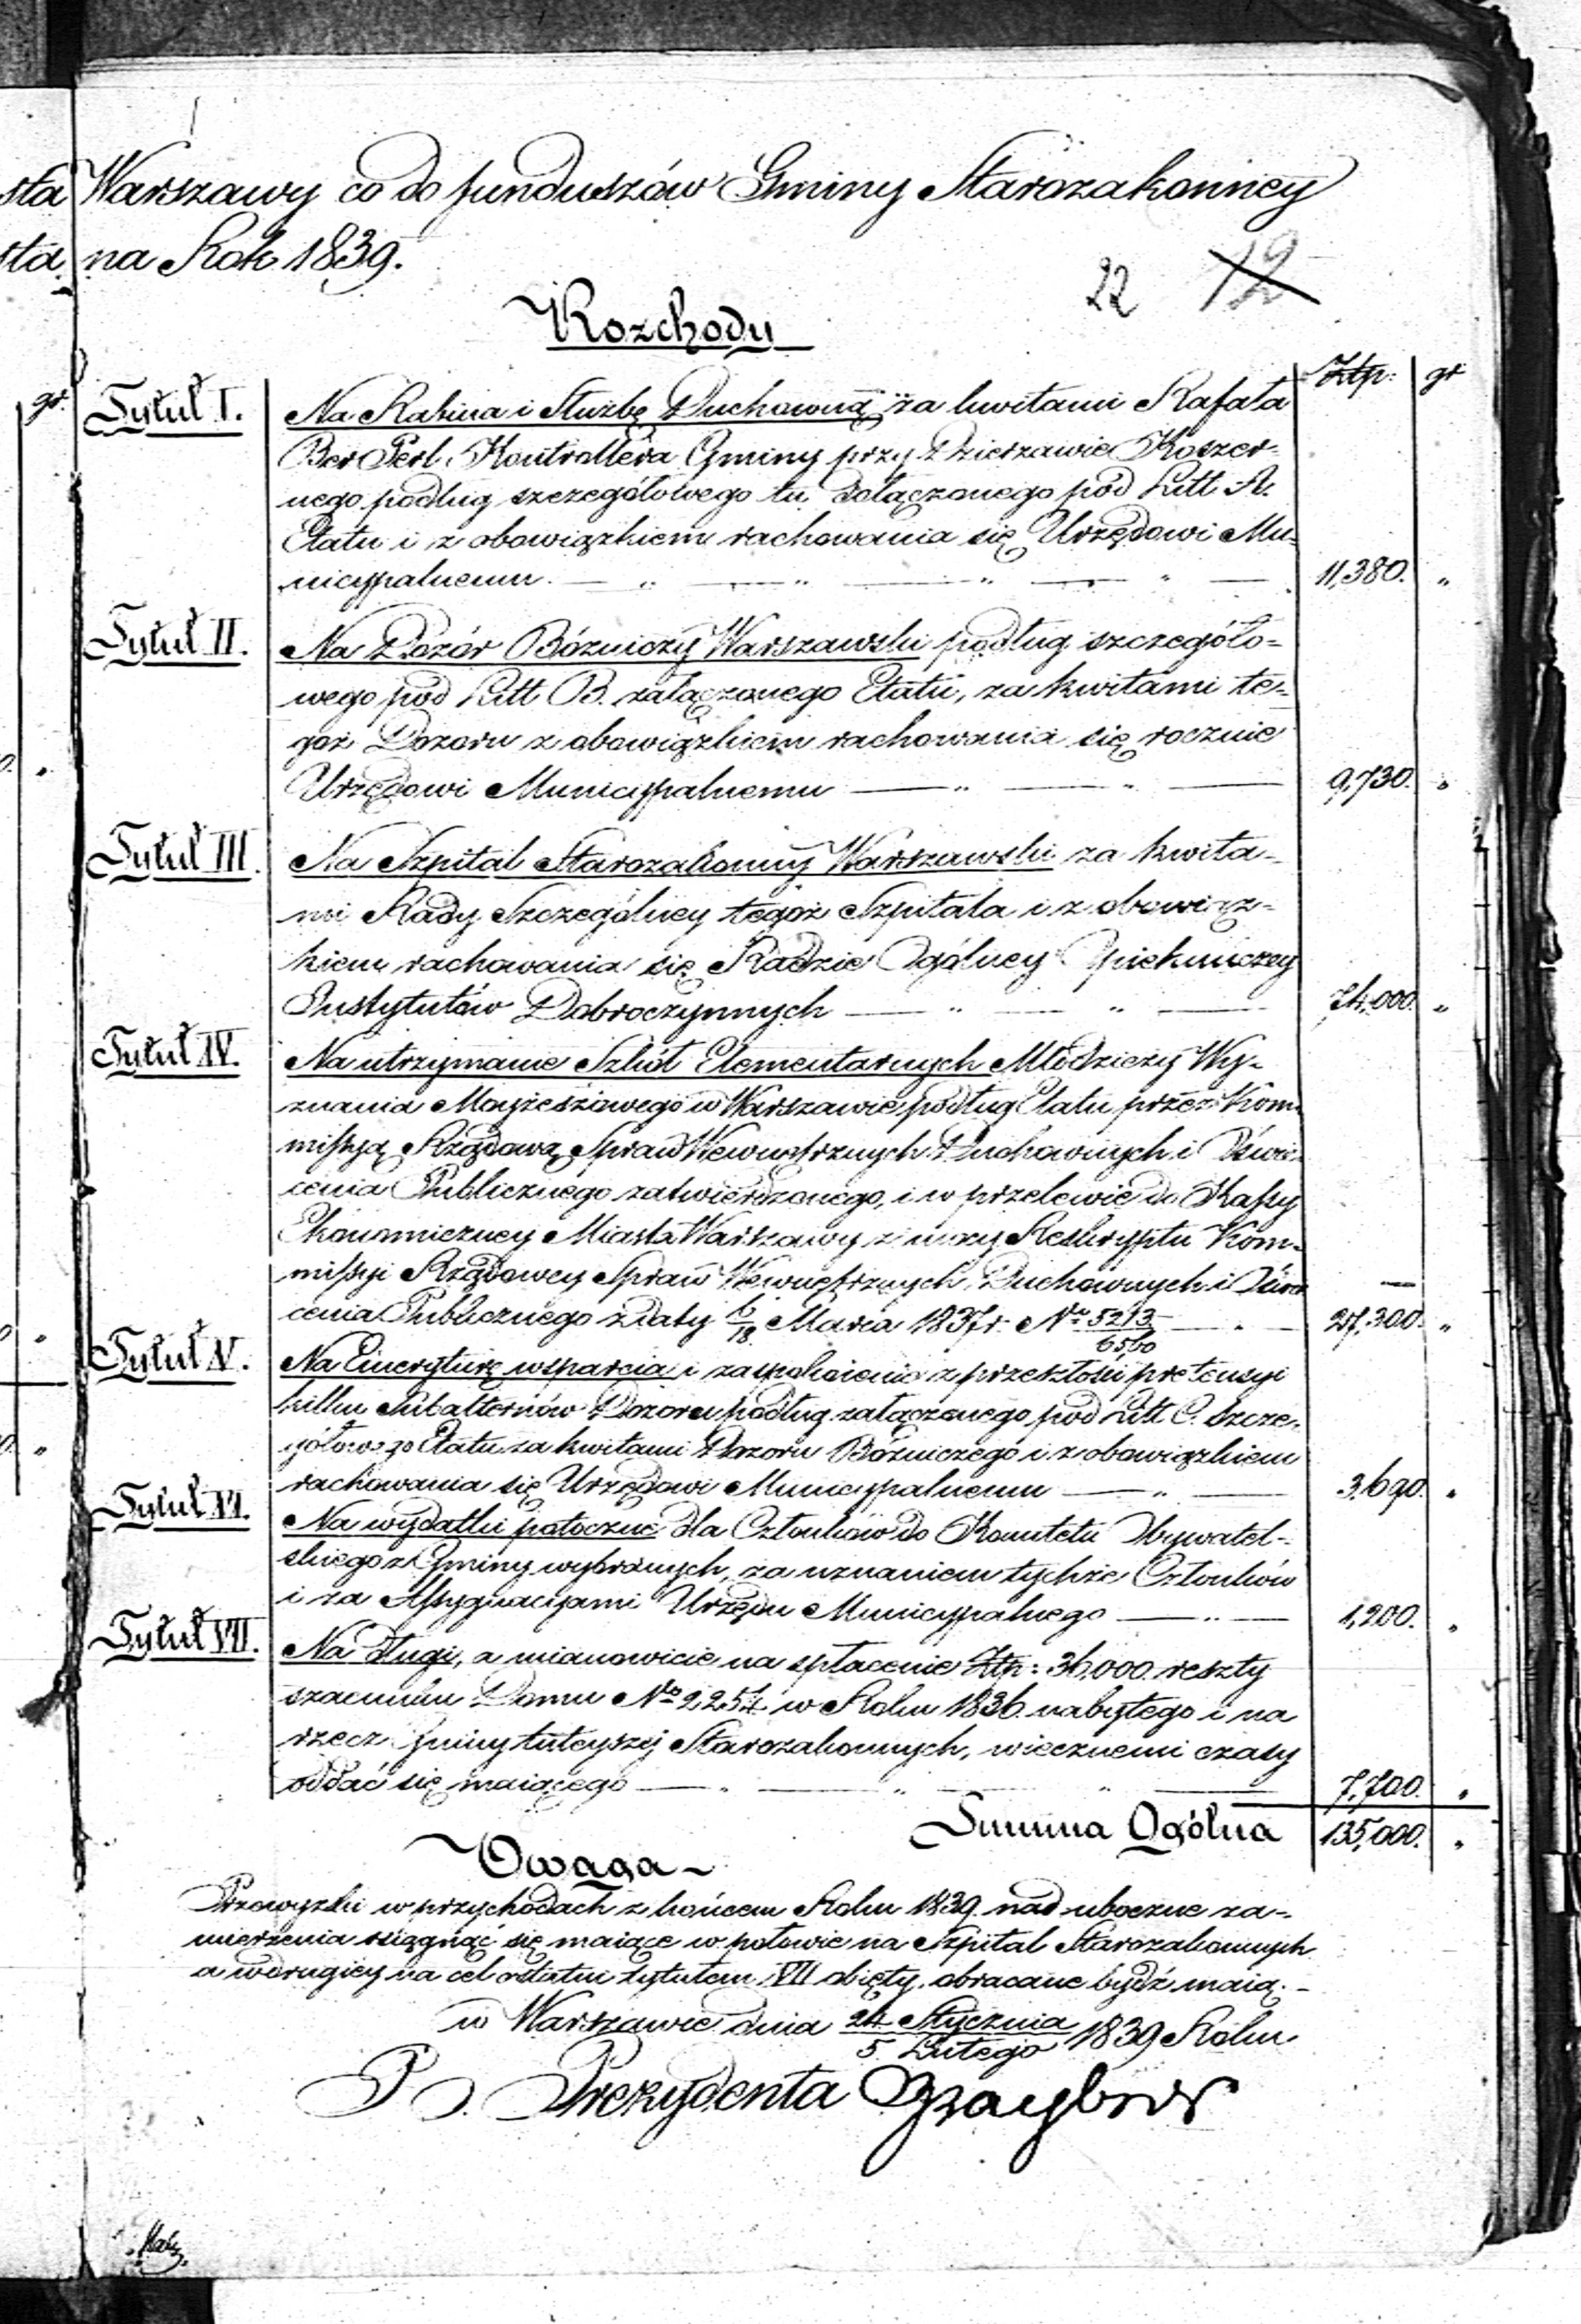 sta Warszawy co do funduszów Gminy Starozakonney
sta na Rok 1839.
22 12
Rozchody
Złp: gr
gr.
Tytuł I. Na Rabina i Służbę Duchowną za kwitami Rafała
Ber Perl, Kontrollera Gminy przy Dzierzawie Koszer-
nego podług szczegółowego tu dołączonego pod Litt A.
Etatu i z obowiązkiem rachowania się Urzędowi Mu-
nicypalnemu. — „ — „ — „ — „ — 11,380. „
Tytuł II. Na Dozór Bózniczy Warszawski podług szczegóło-
wego pod Litt B. załączonego Etatu, za kwitami te-
goż Dozoru z obowiązkiem rachowania się rocznie
Urzędowi Municypalnemu — „ — „ — 9,730. „
Tytuł III. Na Szpital Starozakonny Warszawski za kwita-
mi Rady Szczególney tegoż Szpitala i z obowiąz-
kiem rachowania się Radzie Ogólney Opiekuńczey
Instytutów Dobroczynnych — „ — „ — 74,000. „
Tytuł IV. Na utrzymanie Szkół Elementarnych Młodzieży Wy-
znania Mojżeszowego w Warszawie podług Etatu przez Kom-
missyą Rządową Spraw Wewnętrznych Duchownych i Oświe-
cenia Publicznego zatwierdzonego, i w przelewie do Kassy
Ekonomiczney Miasta Warszawy z mocy Reskryptu Kom-
missyi Rządowey Spraw Wewnętrznych, Duchownych i Oświe
cenia Publicznego z daty 6/18 Marca 1837 r. No 5213/6560 — „ — 27,300. „
Tytuł V. Na Emeryturę wsparcia i zaspokoienie z przeszłości pretensyi
kilku Subalternów Dozoru podług załączonego pod Litt C. szcze-
gółowego Etatu za kwitami Dozoru Bózniczego i z obowiązkiem
rachowania się Urzędowi Municypalnemu — „ — 3,690. „
Tytuł VI. Na wydatki potoczne dla Członków do Komitetu Obywatel-
skiego z Gminy wybranych, za uznaniem tychże Członków
i za Assygnacyjami Urzędu Municypalnego — „ — 1,200. „
Tytuł VII. Na długi, a mianowicie na spłacenie Złp: 36,000 reszty
szacunku Domu No 2254 w Roku 1836 nabytego i na
rzecz Gminy tuteyszej Starozakonnych, wiecznemi czasy
oddać się maiącego — „ — „ — „ — 7,700. „
Summa Ogólna 135,000. „
Uwaga -
Przewyzki w przychodach z końcem Roku 1839 nad uboczne za-
mierzenia osiągnąć się maiące w połowie na Szpital Starozakonnych
a w drugiey na cel ostatni tytułem VII obięty, obracane bydź maią. -
w Warszawie dnia 24 Stycznia/5 Lutego 1839 Roku
P. O. Prezydenta